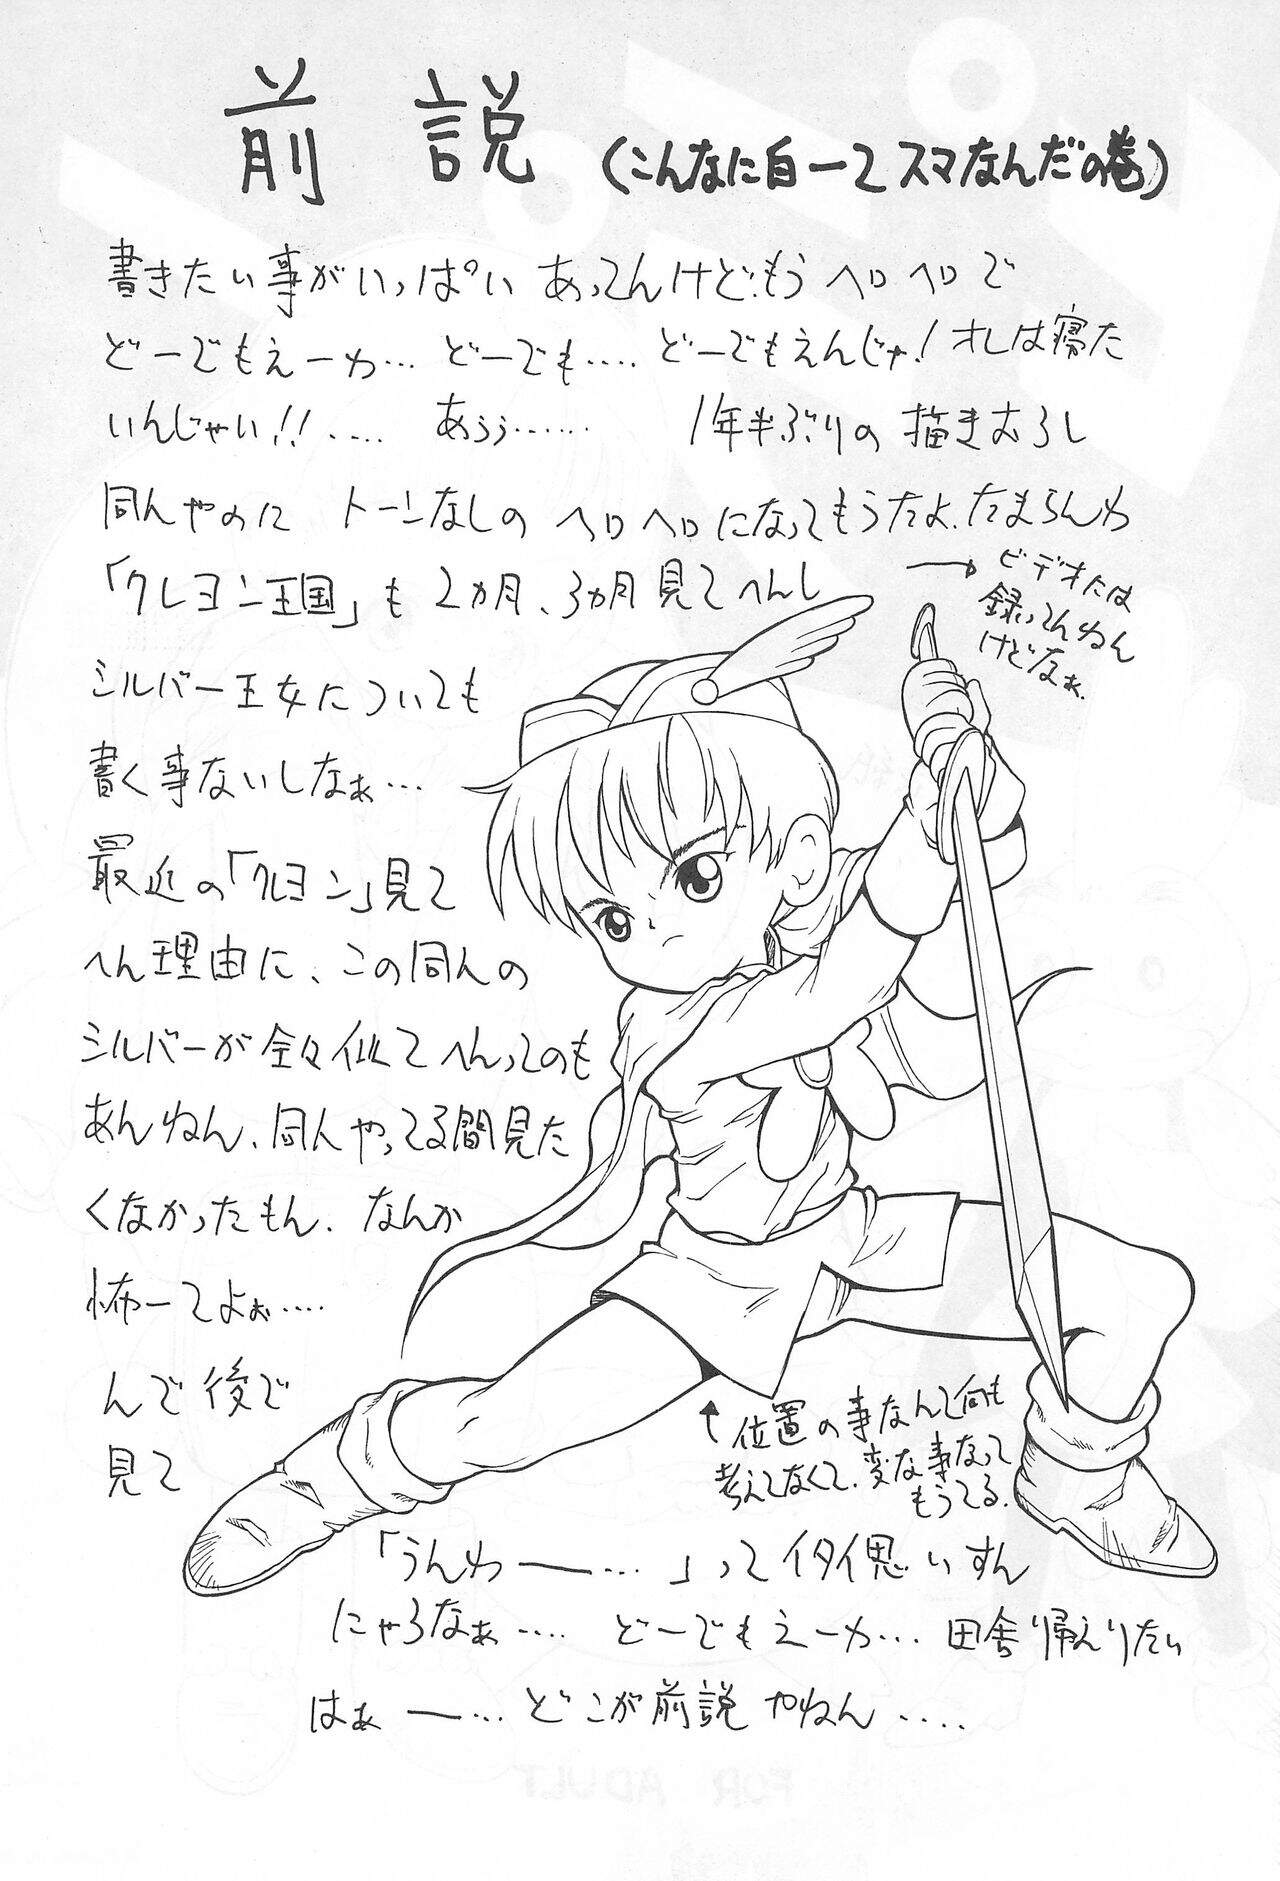 前説 (こんなに白ーてスマなんだの巻)
書きたい事がいっぱいあってんけど、もうヘロヘロで
どーでもえーわ… どーでも…. どーでもえんじゃ!オレは寝た
いんじゃい!!.... あぅぅ…… 1年半ぶりの描きおろし
同人やのに トーンなしのヘロヘロになってもうたよ.たまらんわ
「クレヨン王国」も2ヵ月、3ヵ月見てへんし
→ビデオには
録ってんねん
けどなぁ.
シルバー王女についても
書く事ないしなぁ…
最近の「クレヨン」見て
へん理由に、この同人の
シルバーが全々似てへんってのも
あんねん、同人やってる間見た
くなかったもん. なんか
怖ーてよぉ….
んで後で
見て
↑位置の事なんて何も
考えてなくて.変な事なって
もうてる.
「うんわー…. 」ってイタイ思いすん
にゃろなぁ…. どーでもえーわ… 田舎帰えりたい
はぁー… どこが前説やねん ....
FOR ADULT